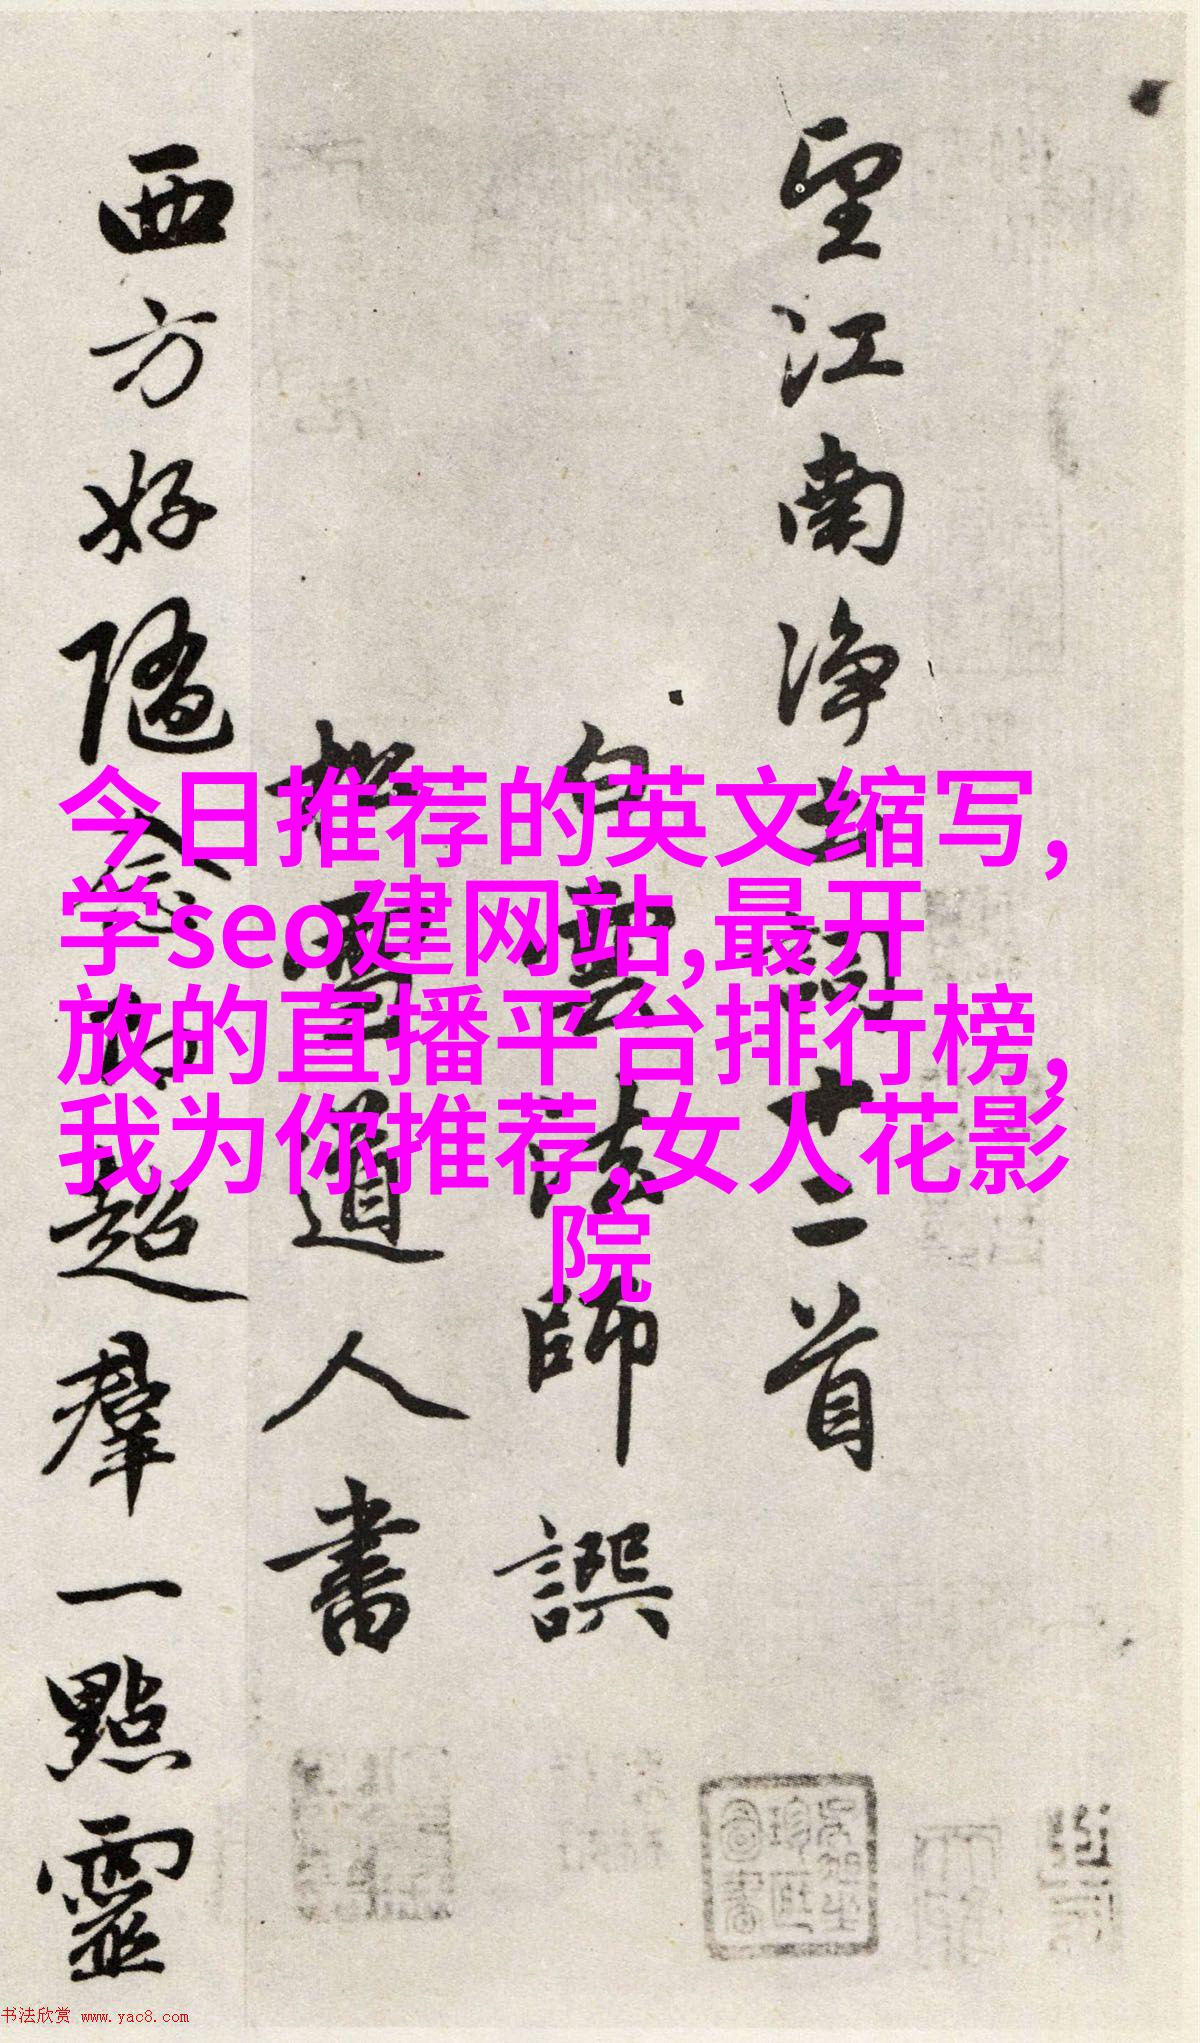 望江南淨土詞十二首
白雲法師譔
松雪道人書
西方好隨念即超羣一點靈
今日推荐的英文缩写,
学seo建网站,最开
放的直播平台排行榜,
我为你推荐,女人花影
院
书法欣赏 www.yac8.com